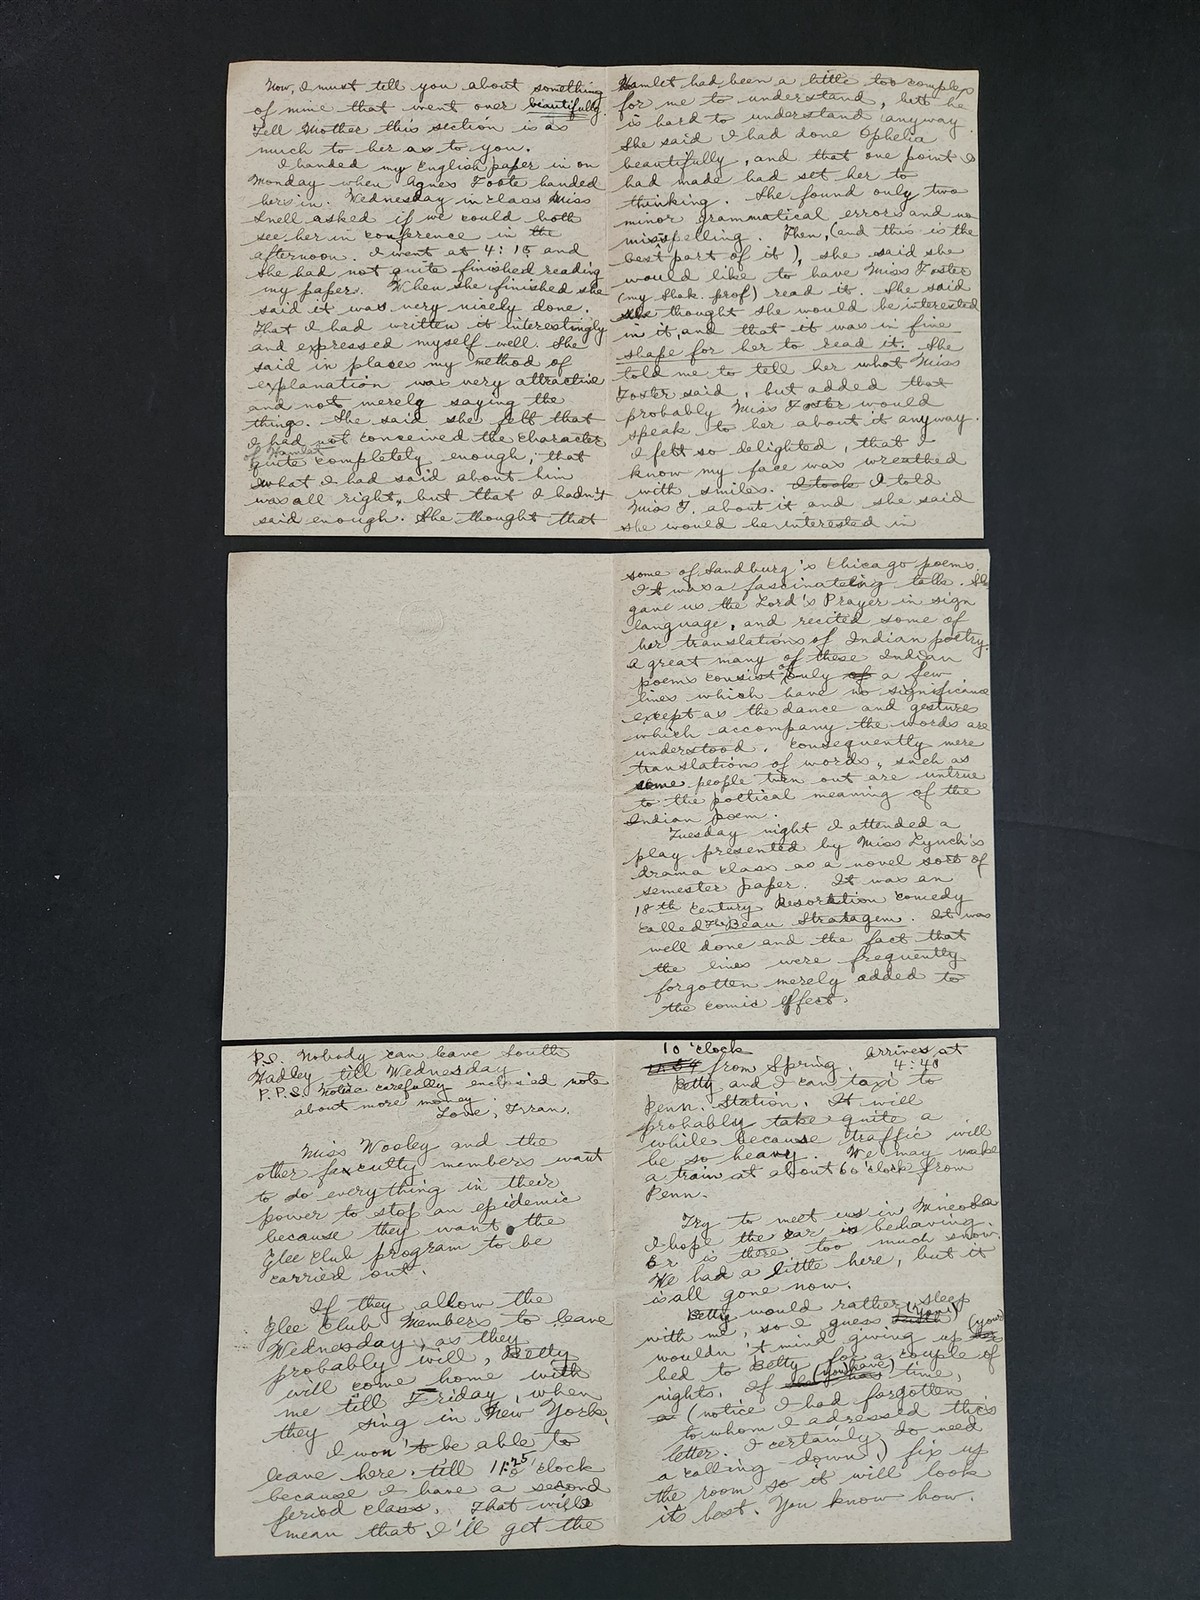 Now, I must tell you about something
of mine that went over beautifully.
Tell Mother this section is as
much to her as to you.
I handed my English paper in on
Monday when Agnes Foote handed
hers in. Wednesday in class Miss
Snell asked if we could both
see her in conference in the
afternoon. I went at 4:15 and
she had not quite finished reading
my paper. When she finished she
said it was very nicely done.
That I had written it interestingly
and expressed myself well. She
said in places my method of
explanation was very attractive
and not merely saying the
things. She said she felt that
I had not conceived the character
of Hamlet
quite completely enough, that
what I had said about him
was all right, but that I hadn't
said enough. She thought that
Hamlet had been a little too complex
for me to understand, but he
is hard to understand anyway.
She said I had done Ophelia
beautifully, and that one point I
had made had set her to
thinking. She found only two
minor grammatical errors and no
misspelling. Then, (and this is the
best part of it), she said she
would like to have Miss Foster
(my Shak. prof) read it. She said
she thought she would be interested
in it, and that it was in fine
shape for her to read it. She
told me to tell her what Miss
Foster said, but added that
probably Miss Foster would
speak to her about it anyway.
I felt so delighted, that I
know my face was wreathed
with smiles. I took I told
Miss F. about it and she said
she would be interested in
some of Sandburg's Chicago poems.
It was a fascinating talk. She
gave us the Lord's Prayer in sign
language, and recited some of
her translations of Indian poetry.
A great many of these Indian
poems consist of only of a few
lines which have no significance
except as the dance and gestures
which accompany the words are
understood. Consequently mere
translations of words, such as
some people turn out are untrue
to the poltical meaning of the
Indian poem.
Tuesday night I attended a
play presented by Miss Lynch's
drama class as a novel sort of
semester paper. It was an
18th Century Resortation comedy
called The Beau Stratagem. It was
well done and the fact that
the lines were frequently
forgotten merely added to
the comic effect.
P.S. Nobody can leave South
Hadley till Wednesday
P.P.S. Notice carefully enclosed note
about more money.
Love, Fran.
Miss Wooley and the
other faxculty members want
to do everything in their
power to stop an epidemic
because they want the
Glee Club program to be
carried out.
If they allow the
Glee Club Members to leave
Wednesday, as they
probably will, Betty
will come home with
me till Friday, when
they sing in New York.
I won't be able to
leave here till 11:25 o'clock
because I have a second
period class. That will
mean that I'll get the
10 o'clock
from Spring. arrives at
4:40
Betty and I can taxi to
Penn. Station. It will
probably take quite a
while because traffic will
be so heavy. We may make
a train at about 6 o'clock from
Penn.
Try to meet us in Mineola
I hope the car is behaving.
Er is there too much snow.
We had a little here, but it
is all gone now.
Betty would rather sleep
with me, so I guess (you)
wouldn't mind giving up (your)
bed to Betty for a couple of
nights. If she has (you have) time,
(notice I had forgotten
to whom I adressed this
letter. I certainly do need
a calling down.) fix up
the room so it will look
its best. You know how.